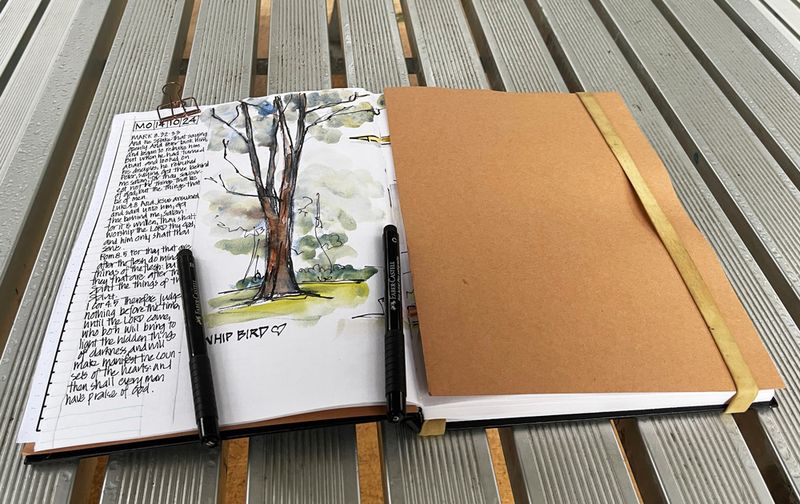 MO 14 10 24
MARK 8.32-33
And he spake that saying
openly. And Peter took him,
and began to rebuke him.
But when he had turned
about and looked on
his disciples, he rebuked
Peter, saying, Get thee behind
me, satan: for thou savour-
est not the things that be
of God, but the things that
be of men.
Luke 4.8 And Jesus answered
and said unto him, Get
thee behind me, Satan:
for it is written, Thou shalt
worship the LORD thy God,
and him only shalt thou
serve.
Rom 8.5 For they that are
after the flesh do mind
things of the flesh: but
they that are after the
Spirit the things of the
Spirit.
1 Cor 4.5 Therefore judge
nothing before the time,
until the LORD come,
who both will bring to
light the hidden things
of darkness, and will
make manifest the coun-
sels of the hearts: and
then shall every man
have praise of God.
WHIP BIRD
FABER-CASTELL